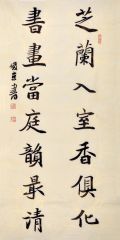 芝蘭入室香俱化
書畫當庭韻最清